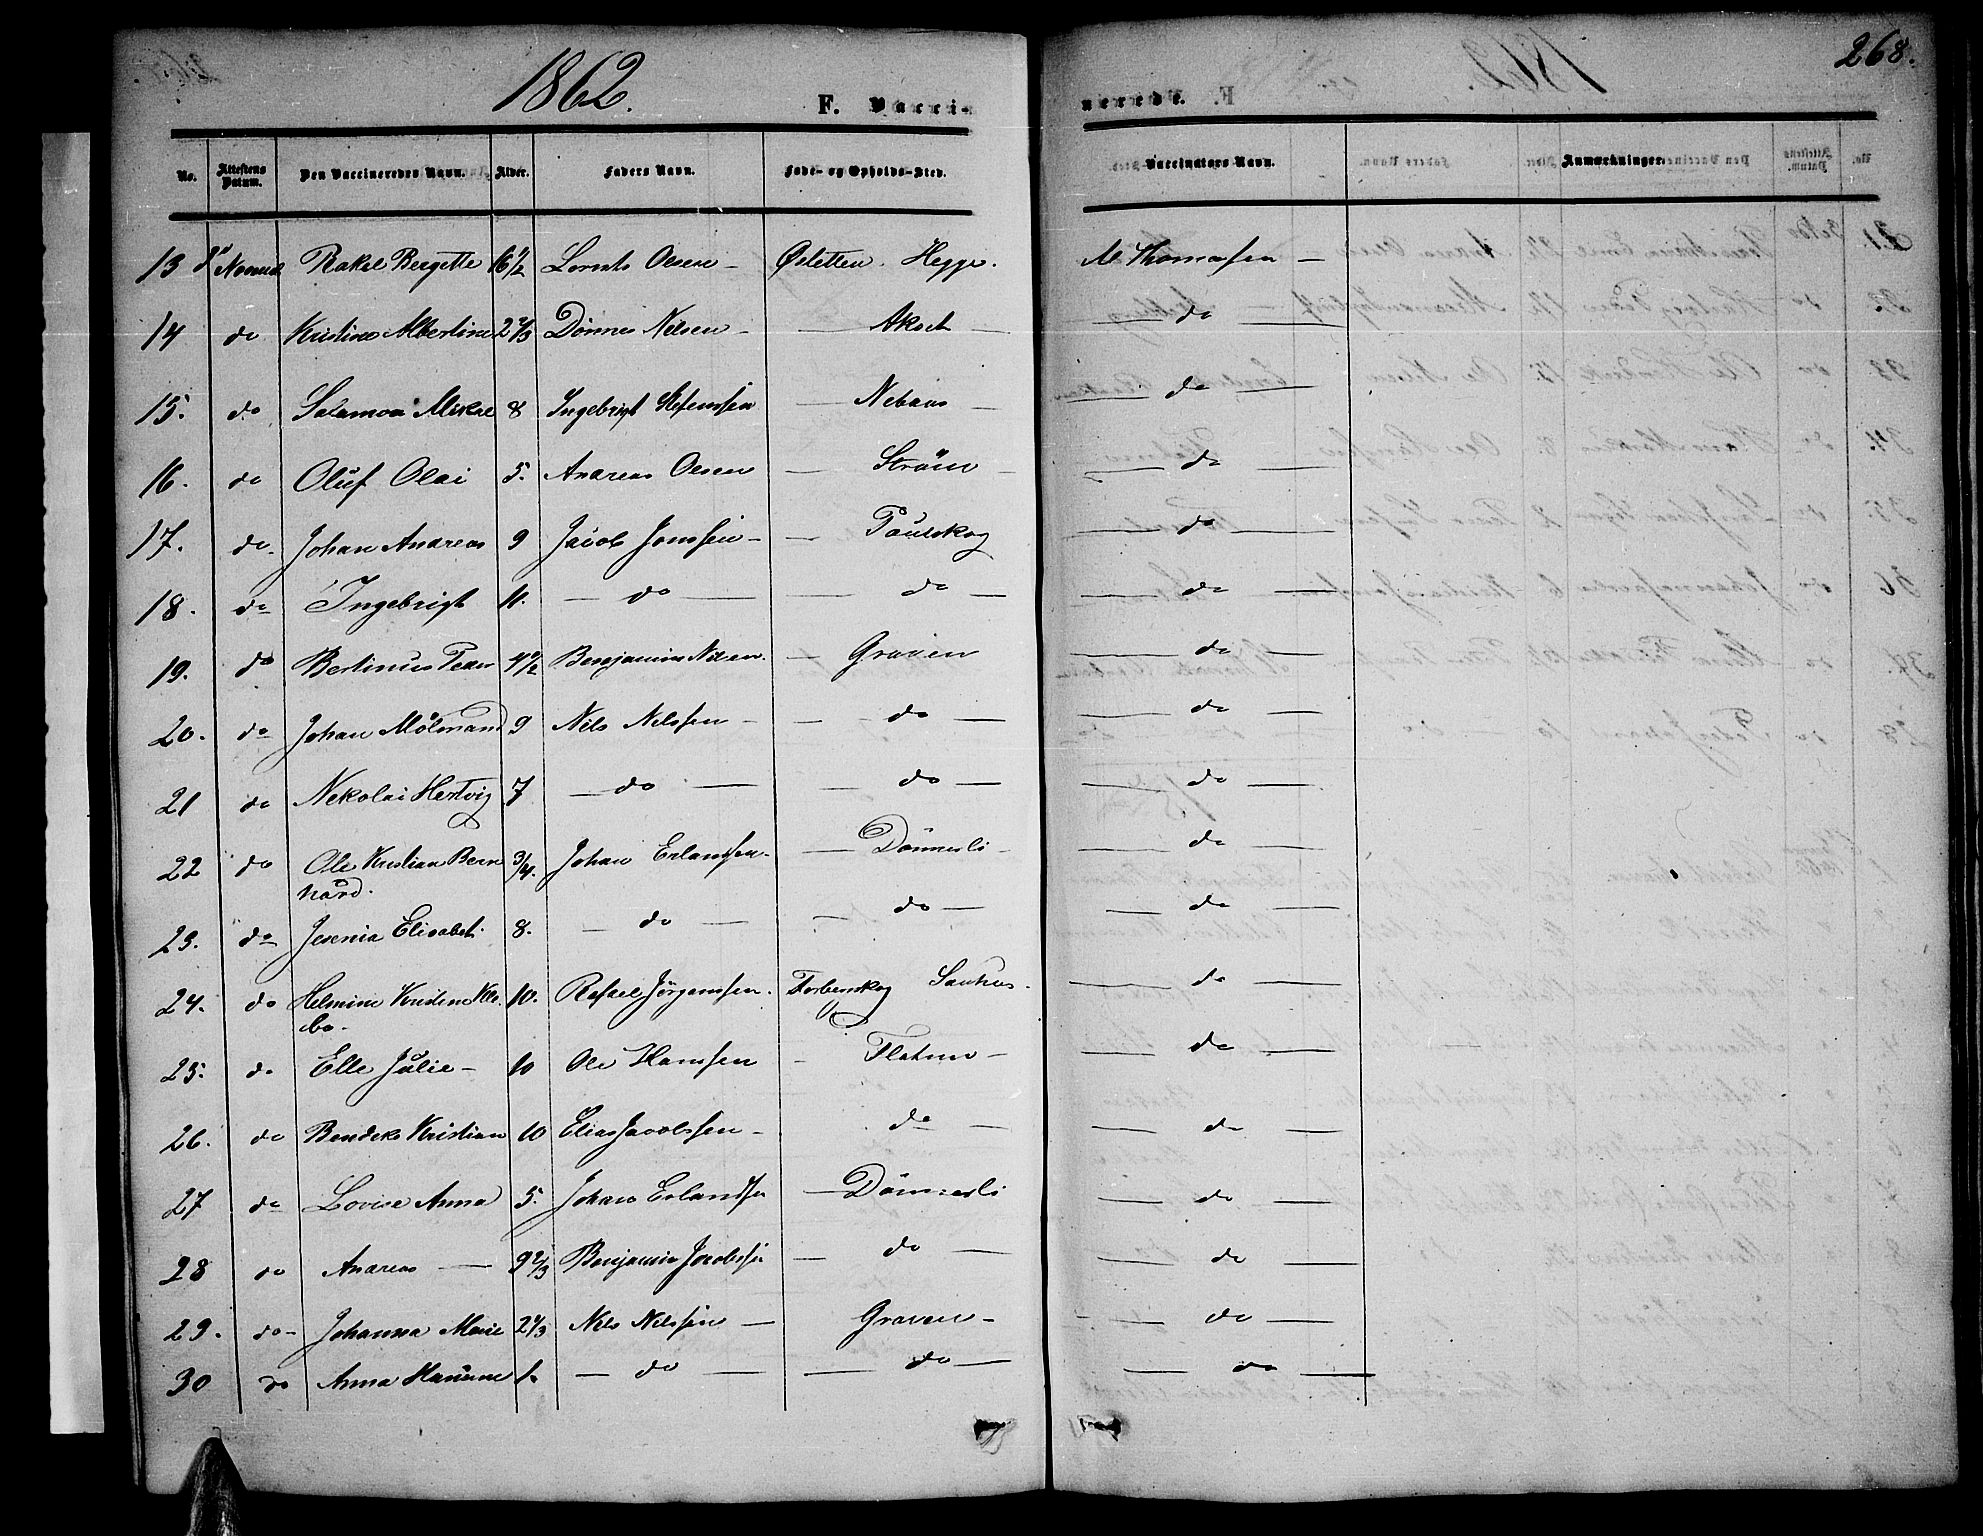 1862. F. Vacci-
nerede. 268.
No. Attestens Datum. Den Vaccineredes Navn. Alder. Faders Navn. Føde- og Opholds-Sted. Vaccinators Navn. Anmærkninger.
13 Rakel Bergette 16 1/2 Lornts Olsen - Hegge. M Thomassen -
14 do Kristine Albertine 2 2/3 Dønnes Nilsen - — Akset — — do —
15. do Salamon Mikal 8 Ingebrigt Stefenssen Nebaus — — do —
16. do Oluf Olai 5. Andreas Olsen — Strøm — — do —
17. do. Johan Andreas 9 Jacob Jonssen - — Paulskog — do —
18. do Ingebrigt 11. — do — — do — — do —
19. do Bertinus Peder 4 1/2 Benjamin Nilsen. — Graven — do —
20. do Johan Mølmand 9 Nils Nilssen - — do — — do —
21 do Nekolai Hertvig 7 — do — — do — — do —
22 do Ole Kristian Bern 3/4. Johan Erlandssen. — Dønnesli - — do —
hard.
23. do Jesenia Elisabet. 8. — do — — do — — do —
24. do Helmine Kristine 10. Rafael Jørgenssen. — do —
25. do Elle Julie - 10 Ole Hanssen - Flatmo - — do —
26. do Bendeks Kristian 10 Elias Jacobssen - do — — do —
27 do Lovise Anna 5. Johan Erlandssen — Dønnesli — do —
28 do Andreas — 9 2/3 Benjamin Jacobssen — do — — do —
29. do - Johanna Marie 2 1/3 Nils Nilssen — Graven - — do —
30 do Anna 1. — do — — do — — do —